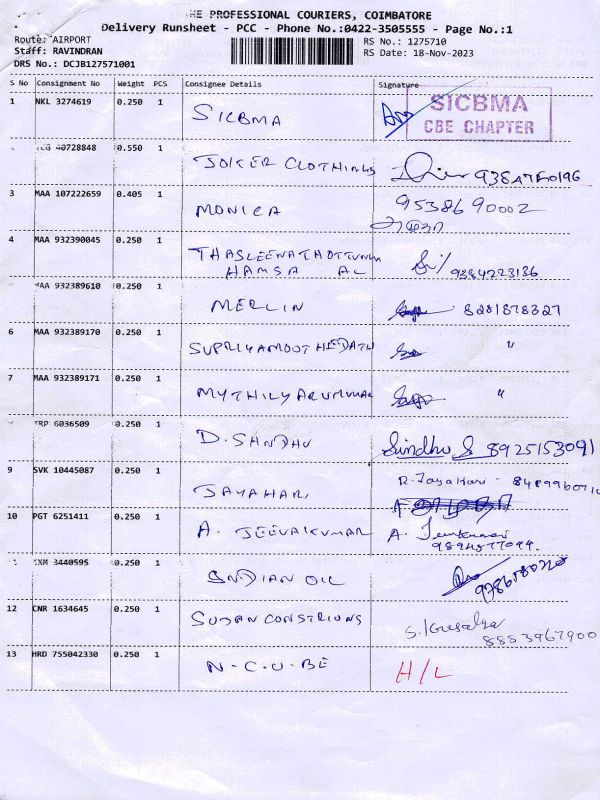 HE PROFESSIONAL COURIERS, COIMBATORE
Delivery Runsheet - PCC - Phone No.:0422-3505555 - Page No.:1
Route: AIRPORT
Staff: RAVINDRAN
DRS No.: DCJB127571001
RS No.: 1275710
RS Date: 18-Nov-2023
S No Consignment No Weight PCS Consignee Details Signature
1 NKL 3274619 0.250 1 SICBMA SICBMA
CBE CHAPTER
40728848 0.550 1 JOKER CLOTHINGS
3 MAA 107222659 0.405 1 MONICA 9538690002
4 MAA 932390045 0.250 1
HAMSA AL 9384223136
MAA 932389610 0.250 1 MERLIN 8281878327
6 MAA 932389170 0.250 1 "
7 MAA 932389171 0.250 1 "
TRP 6036509 0.250 1 D. SANDHU Sindhu S 8925153091
9 SVK 10445087 0.250 1 JAYAHARI R. Jayahari
10 PGT 6251411 0.250 1 A. JEEVAKUMAR A.
3440595 0.250 1 INDIAN OIL
12 CNR 1634645 0.250 1 8883967900
13 HRD 755042330 0.250 1 N-C-U-BE H/L